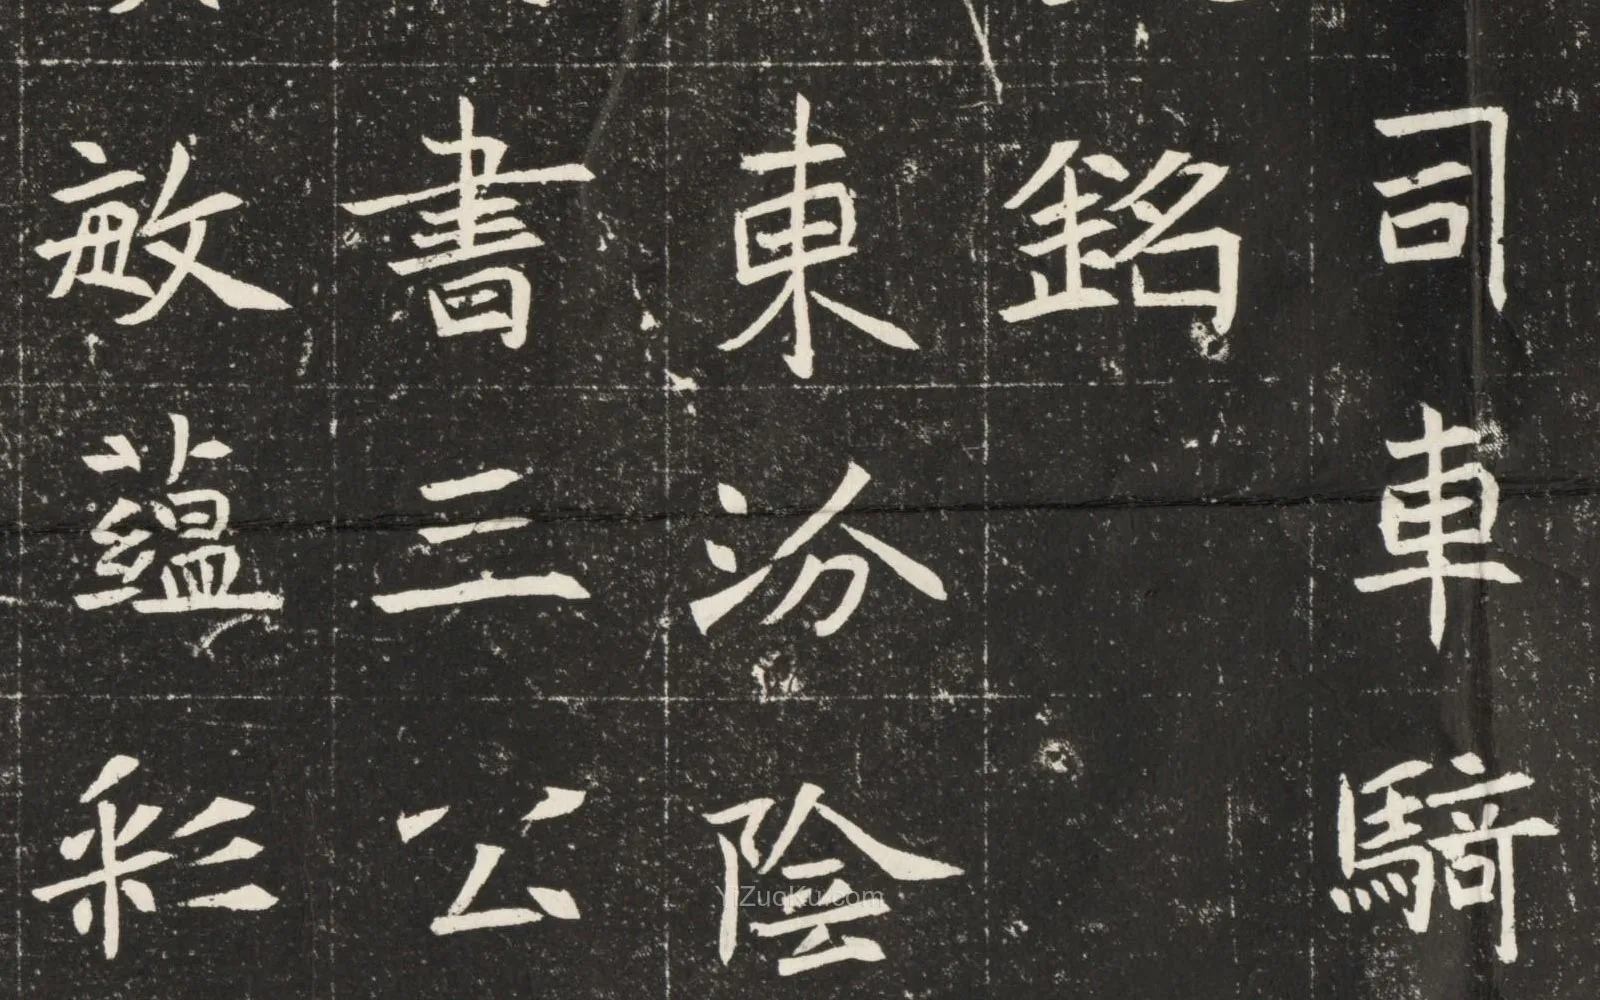 司車騎
銘
東汾陰
書三公
敏蘊彩
YiZuoKu.com